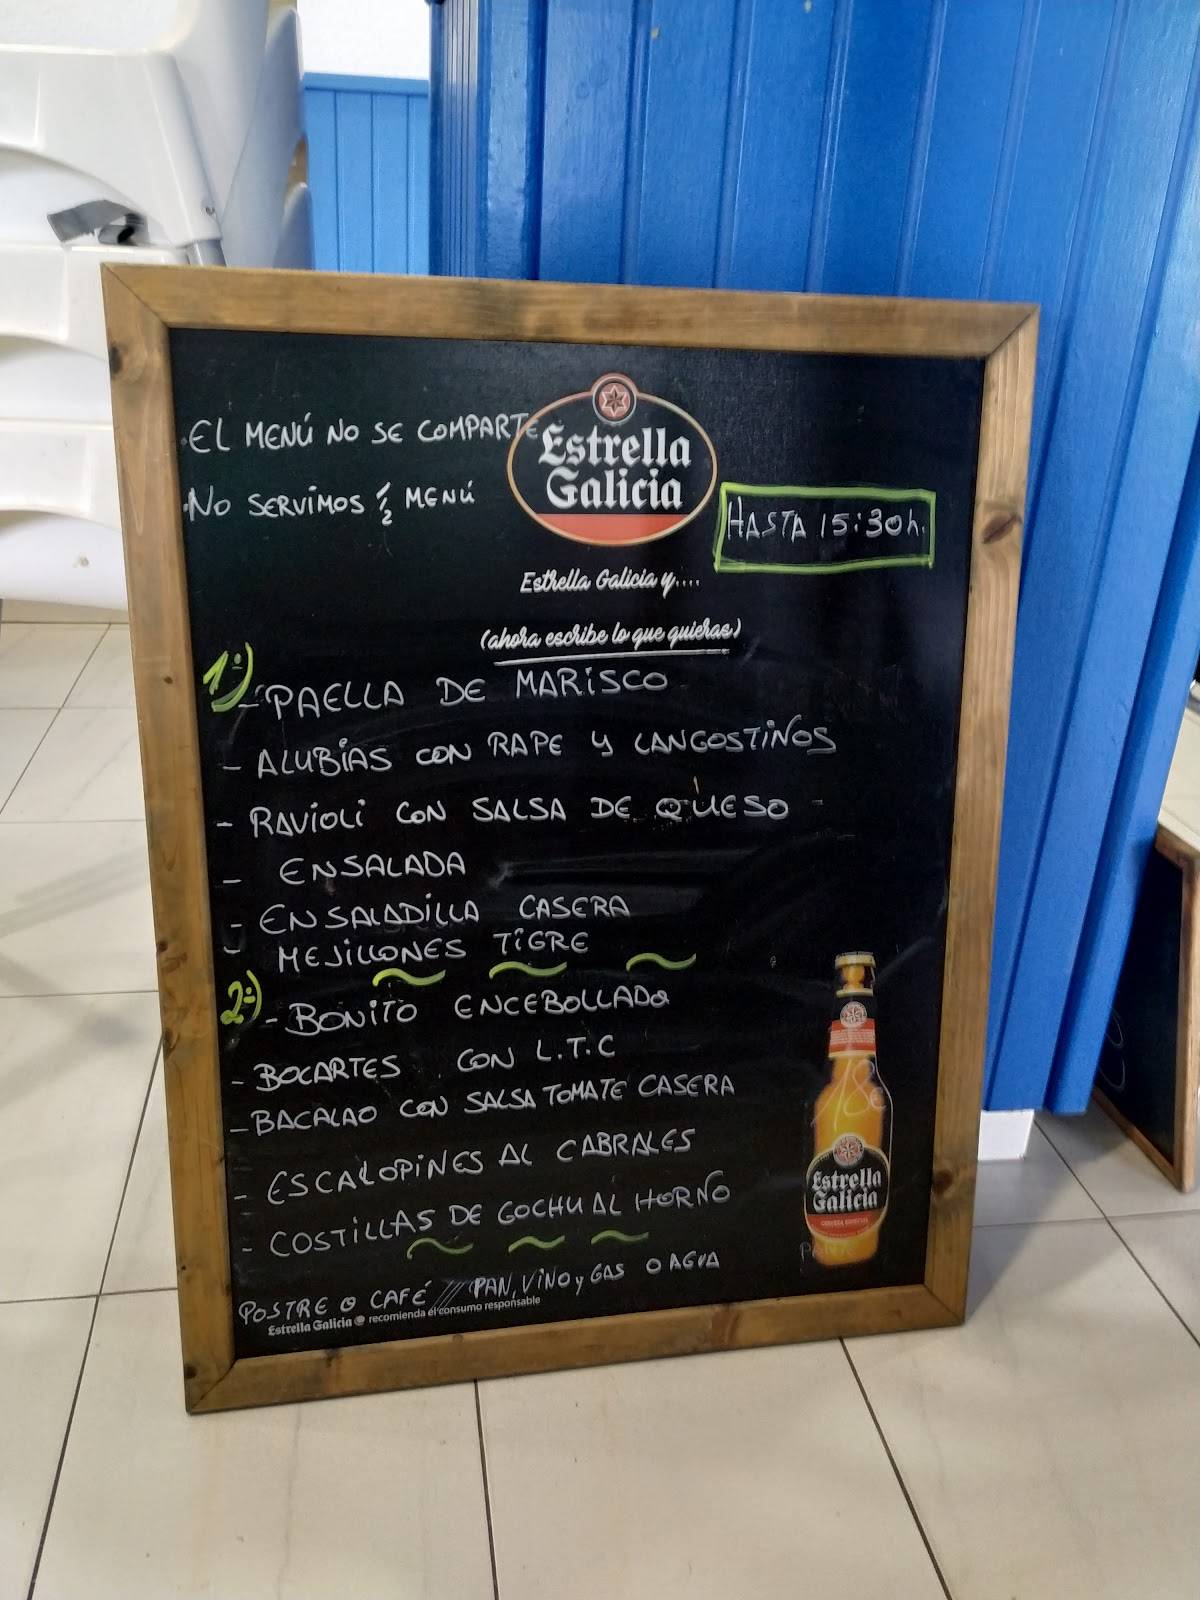 EL MENÚ NO SE COMPARTE
NO SERVIMOS ½ MENÚ
Estrella
Galicia
HASTA 15:30h.
Estrella Galicia y....
(ahora escribe lo que quieras)
1º)
- PAELLA DE MARISCO
- ALUBIAS CON RAPE Y LANGOSTINOS
- RAVIOLI CON SALSA DE QUESO
- ENSALADA
- ENSALADILLA CASERA
- MEJILLONES TIGRE
2º)
- BONITO ENCEBOLLADO
- BOCARTES CON L.T.C
- BACALAO CON SALSA TOMATE CASERA
- ESCALOPINES AL CABRALES
- COSTILLAS DE GOCHU AL HORNO
18€
Estrella
Galicia
CERVEZA ESPECIAL
POSTRE O CAFÉ /// PAN, VINO y GAS O AGUA
Estrella Galicia recomienda el consumo responsable